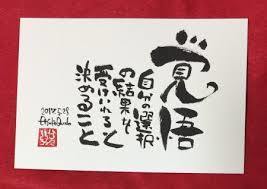 覚悟
自分の選択
の結果を
受け入れると
決めること
2017.5.28